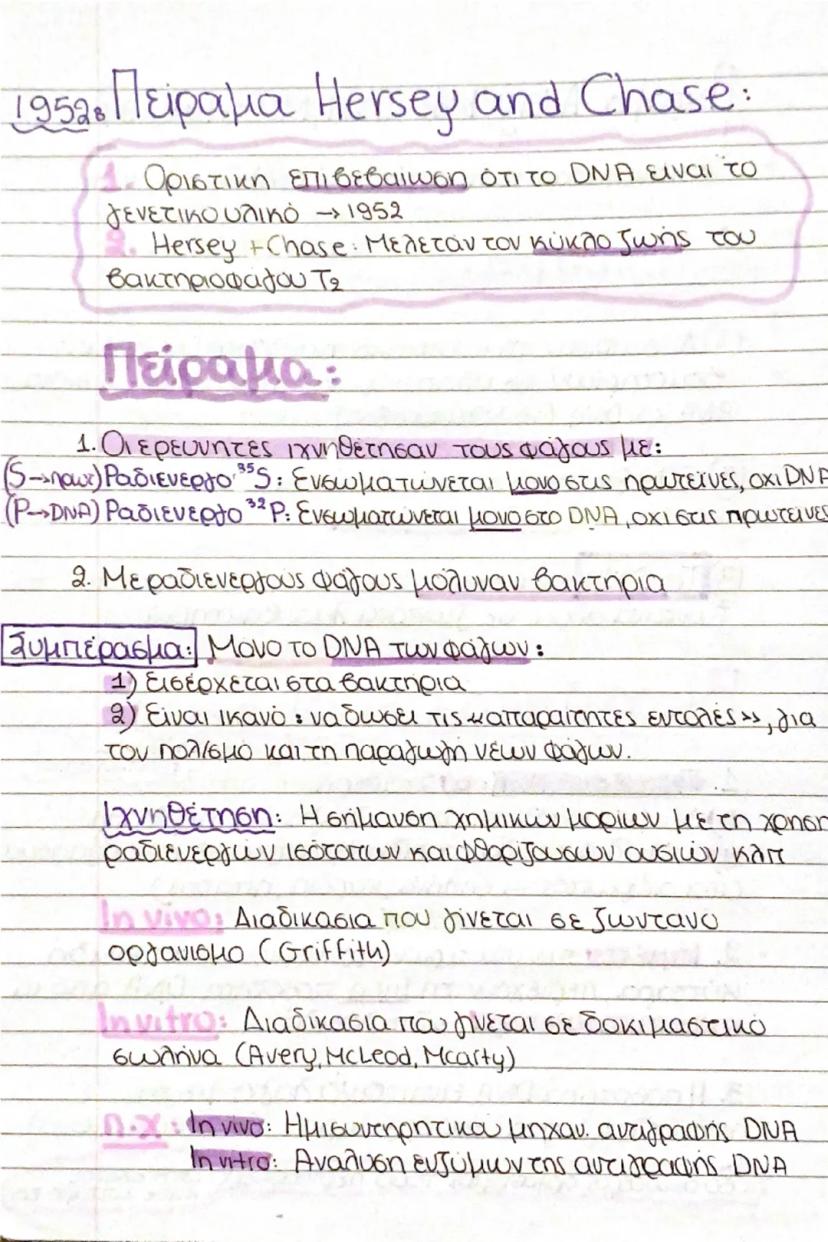 1952: Πείραμα Hersey and Chase:
1. Οριστική επιβεβαίωση ότι το DNA είναι το
γενετικό υλικό → 1952
2. Hersey + Chase: Μελέταν τον κύκλο ζωής του
βακτηριοφάγου T₂
Πείραμα:
1. Οι ερευνητές ιχνηθέτησαν τους φάγους με:
(S→πρωτ) Ραδιενεργό ³⁵S: Ενσωματώνεται μόνο στις πρωτεΐνες, όχι DNA
(P→DNA) Ραδιενεργό ³²P: Ενσωματώνεται μόνο στο DNA, όχι στις πρωτεΐνες
2. Με ραδιενεργούς φάγους μόλυναν βακτήρια
Συμπέρασμα: Μόνο το DNA των φάγων:
1) Εισέρχεται στα βακτήρια
2) Είναι ικανό: να δώσει τις «απαραίτητες εντολές», για
τον πολ/σμό και τη παραγωγή νέων φάγων.
Ιχνηθέτηση: Η σήμανση χημικών μορίων με τη χρήση
ραδιενεργών ισοτόπων και φθοριζουσών ουσιών κλπ
In vivo: Διαδικασία που γίνεται σε ζωντανό
οργανισμό (Griffith)
In vitro: Διαδικασία που γίνεται σε δοκιμαστικό
σωλήνα (Avery, McLeod, Mcarty)
π.χ: In vivo: Ημισυντηρητικού μηχαν. αντιγραφής DNA
In vitro: Ανάλυση ενζύμων της αντιγραφής DNA